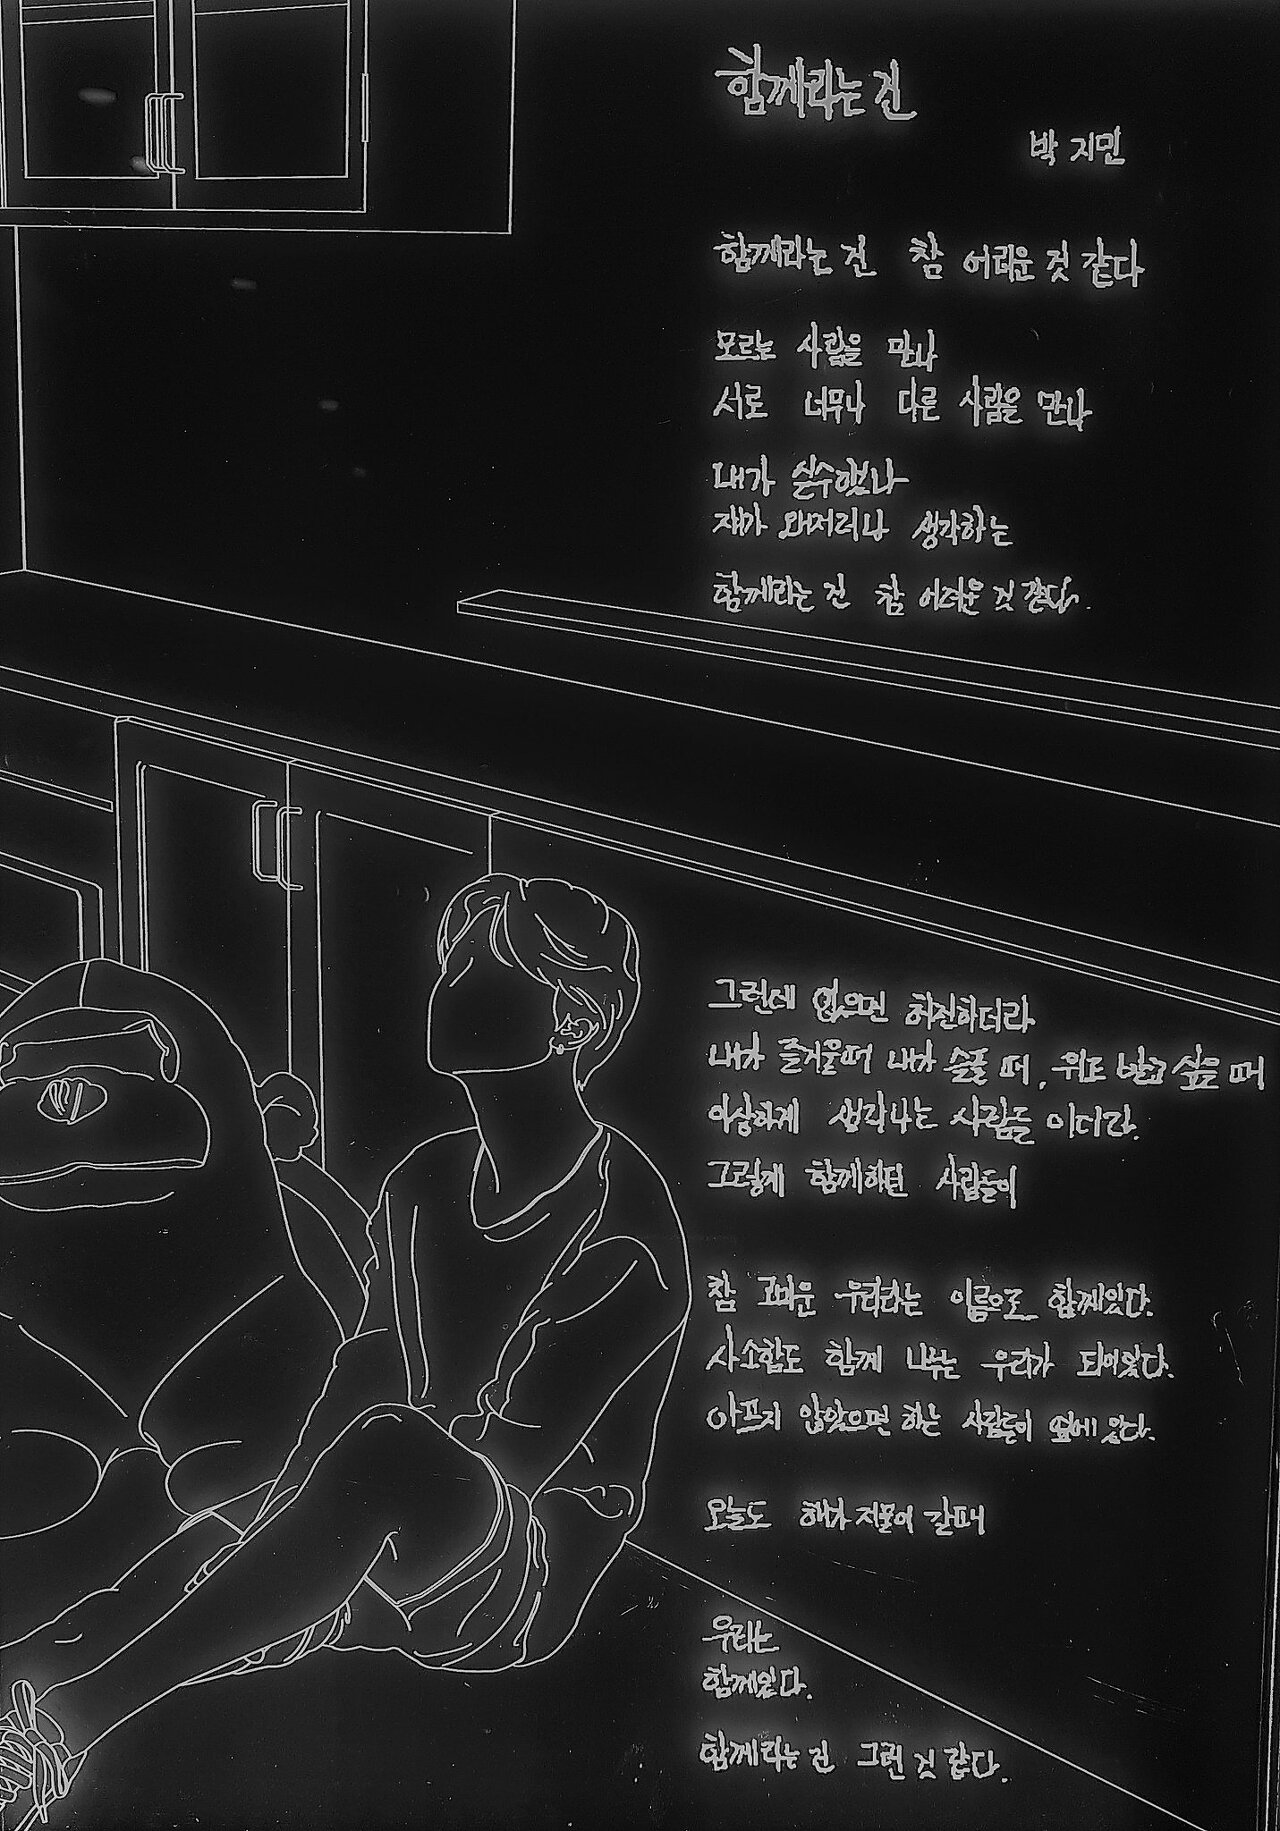 함께라는 건
박 지민
함께라는 건 참 어려운 것 같다
모르는 사람을 만나
서로 너무나 다른 사람을 만나
내가 실수했나
쟤가 왜저러나 생각하는
함께라는 건 참 어려운 것 같다.
그런데 없으면 허전하더라
내가 즐거울때 내가 슬플 때, 위로 받고 싶을 때
이상하게 생각나는 사람들 이더라.
그렇게 함께하던 사람들이
참 고마운 우리라는 이름으로 함께있다.
사소함도 함께 나누는 우리가 되어있다.
아프지 않았으면 하는 사람들이 옆에 있다.
오늘도 해가 저물어 갈때
우리는
함께있다.
함께라는 건 그런 것 같다.